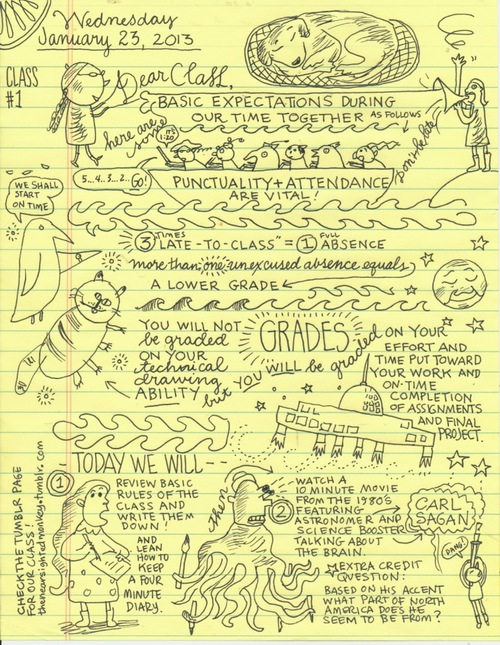 Wednesday
January 23, 2013
CLASS
#1
Dear Class,
here are some
BASIC EXPECTATIONS DURING
OUR TIME TOGETHER AS FOLLOWS
don't be late
IT'S
1:20
5...4...3...2... Go!
PUNCTUALITY + ATTENDANCE
ARE VITAL!
WE SHALL
START
ON TIME
3 TIMES "LATE-TO-CLASS" = 1 FULL ABSENCE
more than one unexcused absence equals
A LOWER GRADE
YOU WILL NOT
be graded
ON YOUR
technical
drawing
ABILITY
but YOU WILL be graded
GRADES
ON YOUR
EFFORT AND
TIME PUT TOWARD
YOUR WORK AND
ON-TIME
COMPLETION
OF ASSIGNMENTS
AND FINAL
PROJECT.
TODAY WE WILL--
1
REVIEW BASIC
RULES OF THE
CLASS AND
WRITE THEM
DOWN!
AND
LEAN
HOW TO
KEEP
A FOUR
MINUTE
DIARY.
Then
2
WATCH A
10 MINUTE MOVIE
FROM THE 1980'S
FEATURING
ASTRONOMER AND
SCIENCE BOOSTER
CARL
SAGAN
TALKING ABOUT
THE BRAIN.
DANG!
EXTRA CREDIT
QUESTION:
BASED ON HIS ACCENT
WHAT PART OF NORTH
AMERICA DOES HE
SEEM TO BE FROM?
CHECK THE TUMBLR PAGE
FOR OUR CLASS!
thenearsightedmonkey.tumblr.com